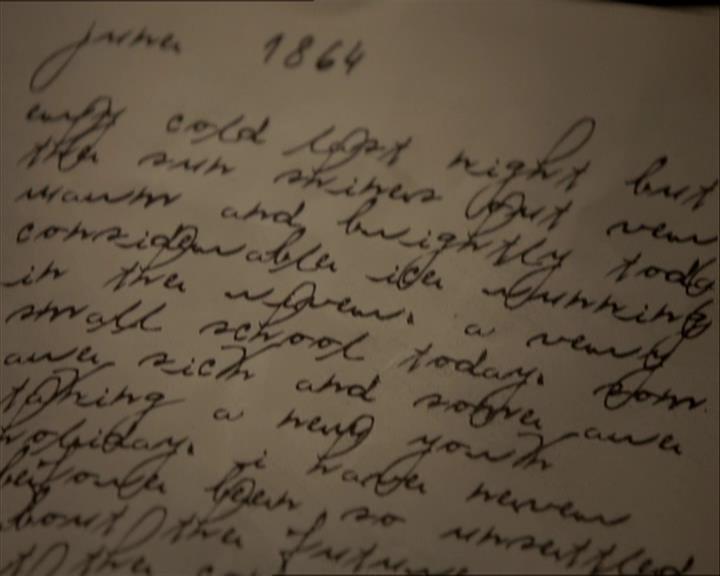 june 1864
cold last night but
the sun shines out very
warm and brightly today
considerable ice running
in the river. a very
small school today. som
are sick and some are
taking a new year
holiday. i have never
before been so unsettled
bout the future